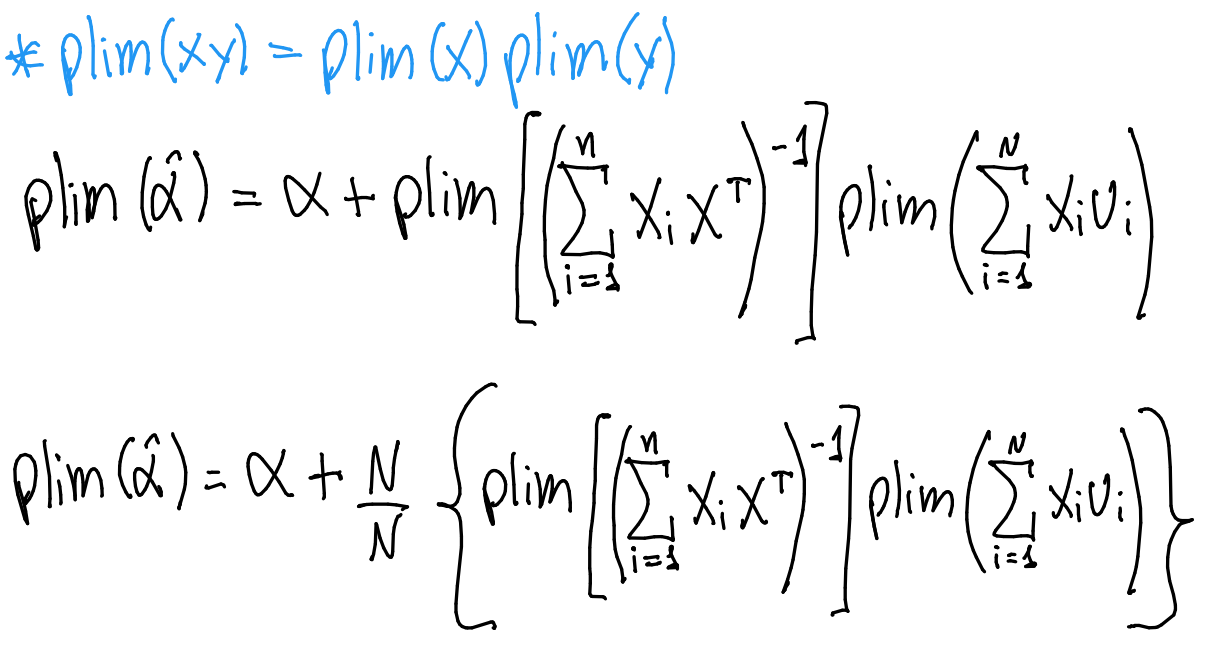 * plim(xy) = plim(x) plim(y)
plim(α̂) = α + plim[(∑_{i=1}^{n} x_i x^T)^{-1}] plim(∑_{i=1}^{N} x_i u_i)
plim(α̂) = α + N/N {plim[(∑_{i=1}^{n} x_i x^T)^{-1}] plim(∑_{i=1}^{N} x_i u_i)}